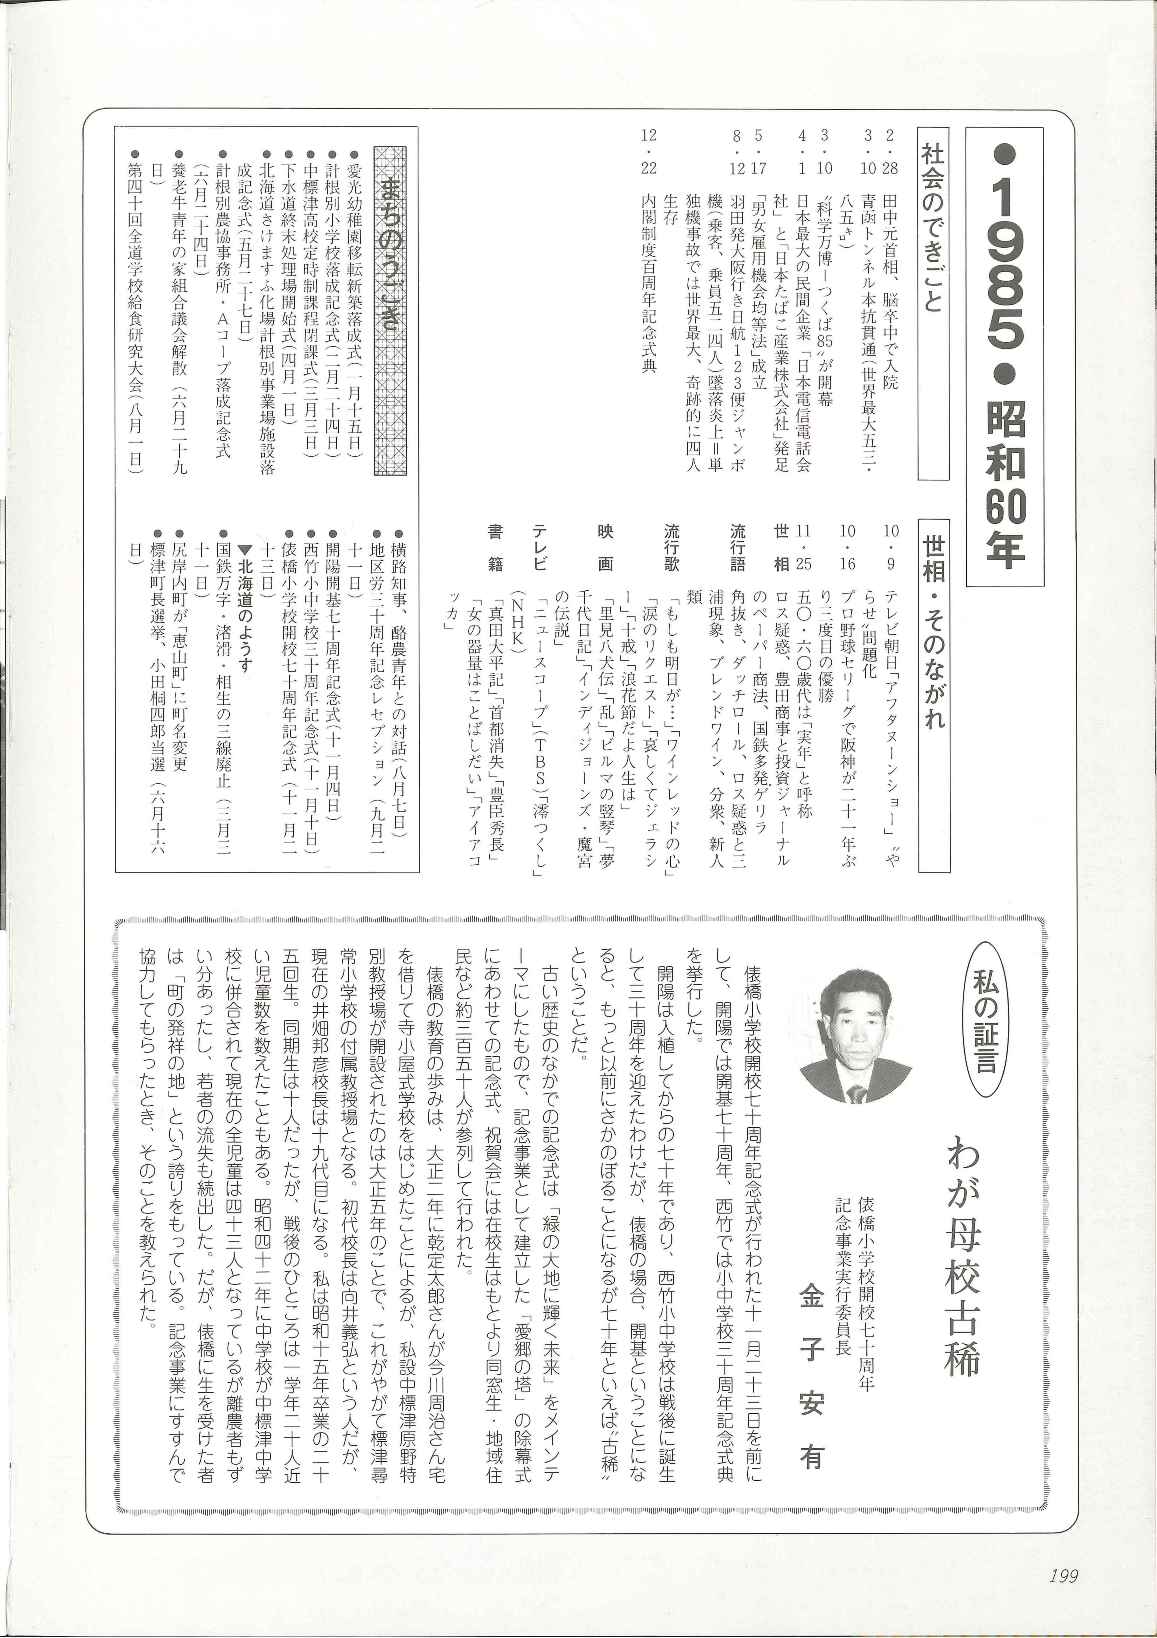 ●1985●昭和60年
社会のできごと
2・28　田中元首相、脳卒中で入院
3・10　青函トンネル本坑貫通（世界最大五三・
八五㌔）
3・10　“科学万博―つくば85”が開幕
4・1　日本最大の民間企業「日本電信電話会
社」と「日本たばこ産業株式会社」発足
5・17　「男女雇用機会均等法」成立
8・12　羽田発大阪行き日航123便ジャンボ
機（乗客、乗員五二四人）墜落炎上＝単
独機事故では世界最大、奇跡的に四人
生存
12・22　内閣制度百周年記念式典
世相・そのながれ
10・9　テレビ朝日「アフタヌーンショー」“や
らせ”問題化
10・16　プロ野球セリーグで阪神が二十一年ぶ
り三度目の優勝
11・25　五〇・六〇歳代は「実年」と呼称
世相　ロス疑惑、豊田商事と投資ジャーナル
のペーパー商法、国鉄多発ゲリラ
流行語　角抜き、ダッチロール、ロス疑惑と三
浦現象、ブレンドワイン、分衆、新人
類
流行歌　「もしも明日が…」「ワインレッドの心」
「涙のリクエスト」「哀しくてジェラシ
ー」「十戒」「浪花節だよ人生は」
映画　「里見八犬伝」「乱」「ビルマの竪琴」「夢
千代日記」「インディジョーンズ・魔宮
の伝説」
テレビ　「ニュースコープ」（TBS）「澪つくし」
（NHK）
書籍　「真田太平記」「首都消失」「豊臣秀長」
「女の器量はことばしだい」「アイアコ
ッカ」
まちのうごき
●愛光幼稚園移転新築落成式（一月十五日）
●計根別小学校落成記念式（二月二十四日）
●中標津高校定時制課程閉課式（三月三日）
●下水道終末処理場開始式（四月一日）
●北海道さけますふ化場計根別事業場施設落
成記念式（五月二十七日）
●計根別農協事務所・Aコープ落成記念式
（六月二十四日）
●養老牛青年の家組合議会解散（六月二十九
日）
●第四十回全道学校給食研究大会（八月一日）
●横路知事、酪農青年との対話（八月七日）
●地区労三十周年記念レセプション（九月二
十一日）
●開陽開基七十周年記念式（十一月四日）
●西竹小中学校三十周年記念式（十一月十日）
●俵橋小学校開校七十周年記念式（十一月二
十三日）
▼北海道のようす
●国鉄万字・渚滑・相生の三線廃止（三月三
十一日）
●尻岸内町が「恵山町」に町名変更
●標津町長選挙、小田桐四郎当選（六月十六
日）
私の証言
わが母校古稀
俵橋小学校開校七十周年
記念事業実行委員長
金子安有
俵橋小学校開校七十周年記念式が行われた十一月二十三日を前に
して、開陽では開基七十周年、西竹では小中学校三十周年記念式典
を挙行した。
開陽は入植してからの七十年であり、西竹小中学校は戦後に誕生
して三十周年を迎えたわけだが、俵橋の場合、開基ということにな
ると、もっと以前にさかのぼることになるが七十年といえば“古稀”
ということだ。
古い歴史のなかでの記念式は「緑の大地に輝く未来」をメインテ
ーマにしたもので、記念事業として建立した「愛郷の塔」の除幕式
にあわせての記念式、祝賀会には在校生はもとより同窓生・地域住
民など約三百五十人が参列して行われた。
俵橋の教育の歩みは、大正二年に乾定太郎さんが今川周治さん宅
を借りて寺小屋式学校をはじめたことによるが、私設中標津原野特
別教授場が開設されたのは大正五年のことで、これがやがて標津尋
常小学校の付属教授場となる。初代校長は向井義弘という人だが、
現在の井畑邦彦校長は十九代目になる。私は昭和十五年卒業の二十
五回生。同期生は十人だったが、戦後のひところは一学年二十人近
い児童数を数えたこともある。昭和四十二年に中学校が中標津中学
校に併合されて現在の全児童は四十三人となっているが離農者もず
い分あったし、若者の流失も続出した。だが、俵橋に生を受けた者
は「町の発祥の地」という誇りをもっている。記念事業にすすんで
協力してもらったとき、そのことを教えられた。
199